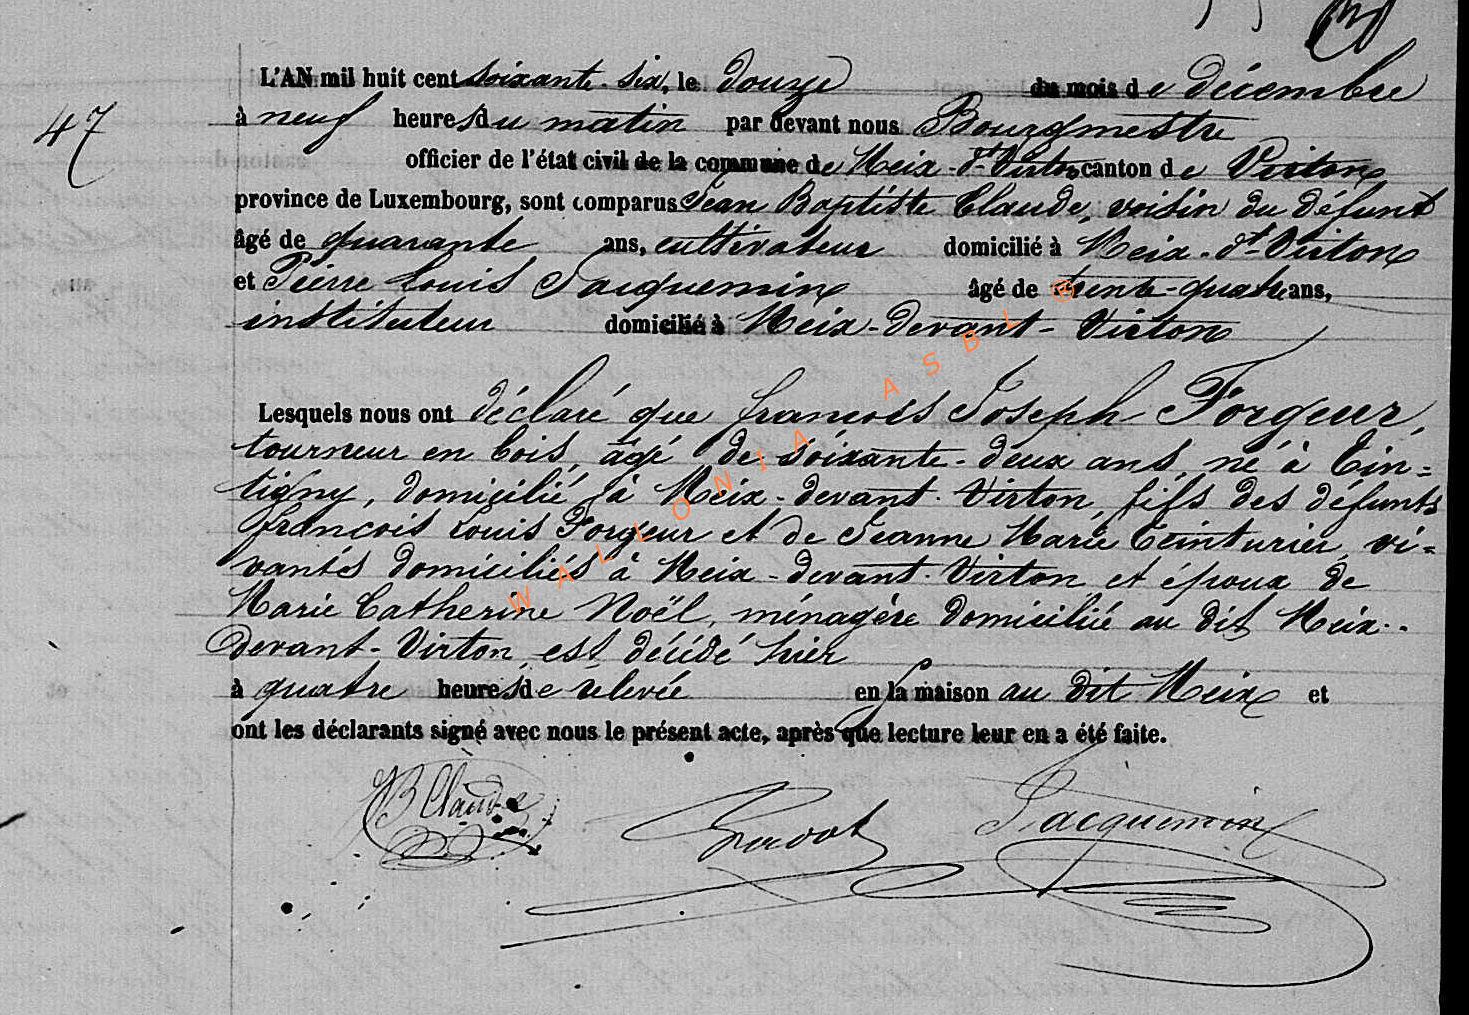 L'AN mil huit cent soixante-six, le douze du mois de décembre
47
à neuf heures du matin par devant nous Bourgmestre
officier de l'état civil de la commune de Meix-dt-Virton canton de Virton
province de Luxembourg, sont comparus Jean Baptiste Claude, voisin du défunt
âgé de quarante ans, cultivateur domicilié à Meix-dt-Virton
et Pierre Louis Jacquemin âgé de trente-quatre ans,
instituteur domicilié à Meix-devant-Virton
Lesquels nous ont déclaré que françois Joseph Forgeur,
tourneur en bois, âgé de soixante-deux ans, né à Tin=
tigny, domicilié à Meix-devant-Virton, fils des défunts
françois Louis Forgeur et de Jeanne Marie Teinturier, vi=
vants domiciliés à Meix-devant-Virton et époux de
Marie Catherine Noël, ménagère domiciliée au dit Meix-
devant-Virton, est décédé hier
à quatre heures de relevée en la maison au dit Meix et
ont les déclarants signé avec nous le présent acte, après que lecture leur en a été faite.
JB Claude Jacquemin
WALLONIA ASBL ®